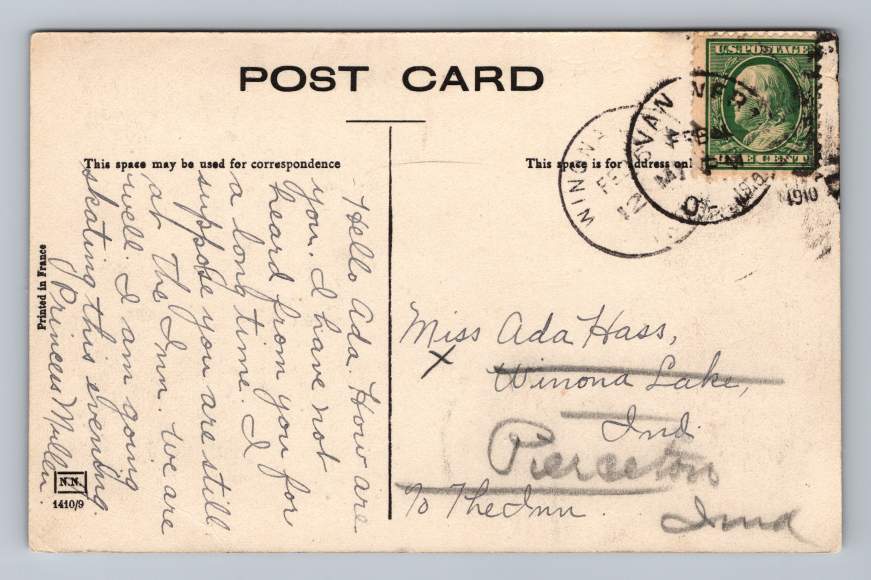 POST CARD
This space may be used for correspondence
This space is for address only
U.S. POSTAGE
ONE CENT
WINONA
FEB
1910
1910
Hello Ada. How are
you. I have not
heard from you for
a long time. I
suppose you are still
at the Inn. We are
well. I am going
skating this evening.
Princess Mullen.
Miss Ada Hass,
X
Winona Lake,
Ind.
Pierceton
℅ The Inn.
Ind
Printed in France
N.N.
1410/9